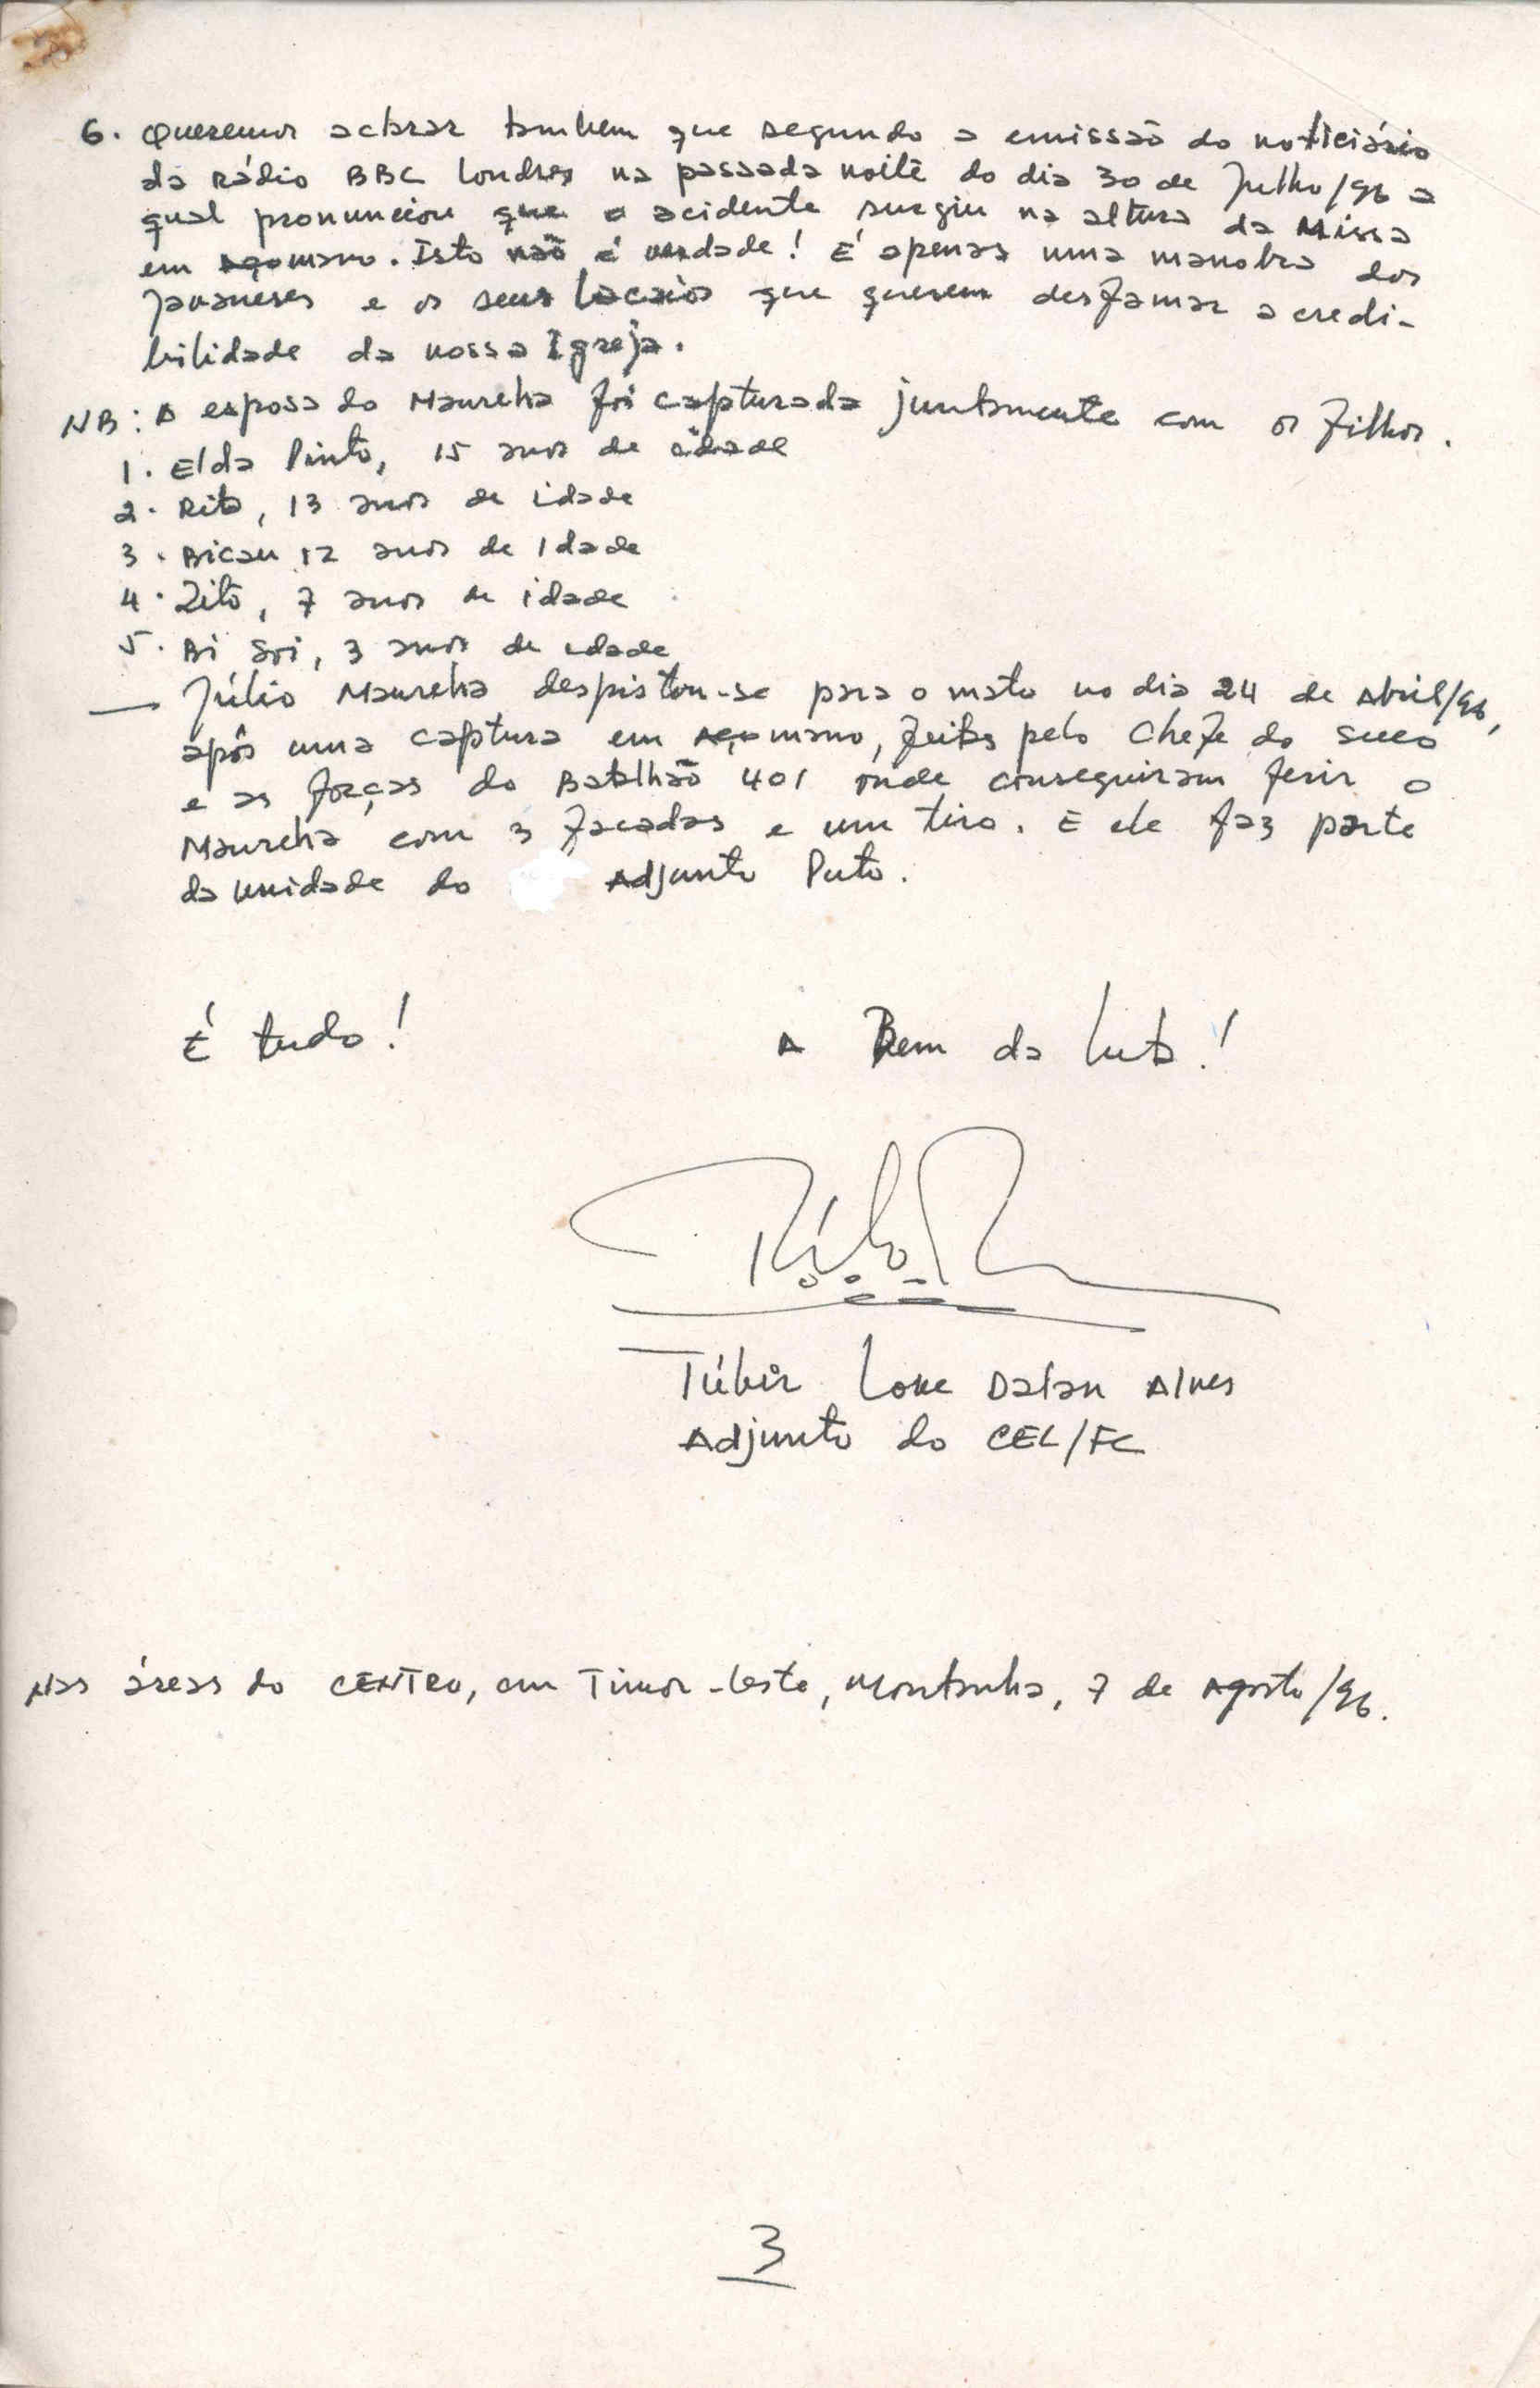 6. Queremos aclarar tambem que segundo a emissão do noticiário
da Rádio BBC Londres na passada noite do dia 30 de Julho/96 a
qual pronunciou que o acidente surgiu na altura da Missa
em Açomano. Isto não é verdade! É apenas uma manobra dos
javaneses e os seus lacaios que querem desfamar a credi-
bilidade da nossa Igreja.
NB: A esposa do Maureha foi capturada juntamente com os filhos.
1. Elda Pinto, 15 anos de idade
2. Rita, 13 anos de idade
3. Bicau 12 anos de Idade
4. Zito, 7 anos de idade
5. Bi Soi, 3 anos de idade
— Júlio Maureha despistou-se para o mato no dia 24 de Abril/96,
após uma captura em Açomano, feitas pelo Chefe do Suco
e as forças do Batalhão 401 onde conseguiram ferir o
Maureha com 3 facadas e um tiro. E ele faz parte
da Unidade do Adjunto Puto.
É tudo!
A Bem da Luta!
Lone Dalan Alves
Adjunto do CEL/FC
Nas áreas do CENTRO, em Timor-Leste, Montanha, 7 de Agosto/96.
3